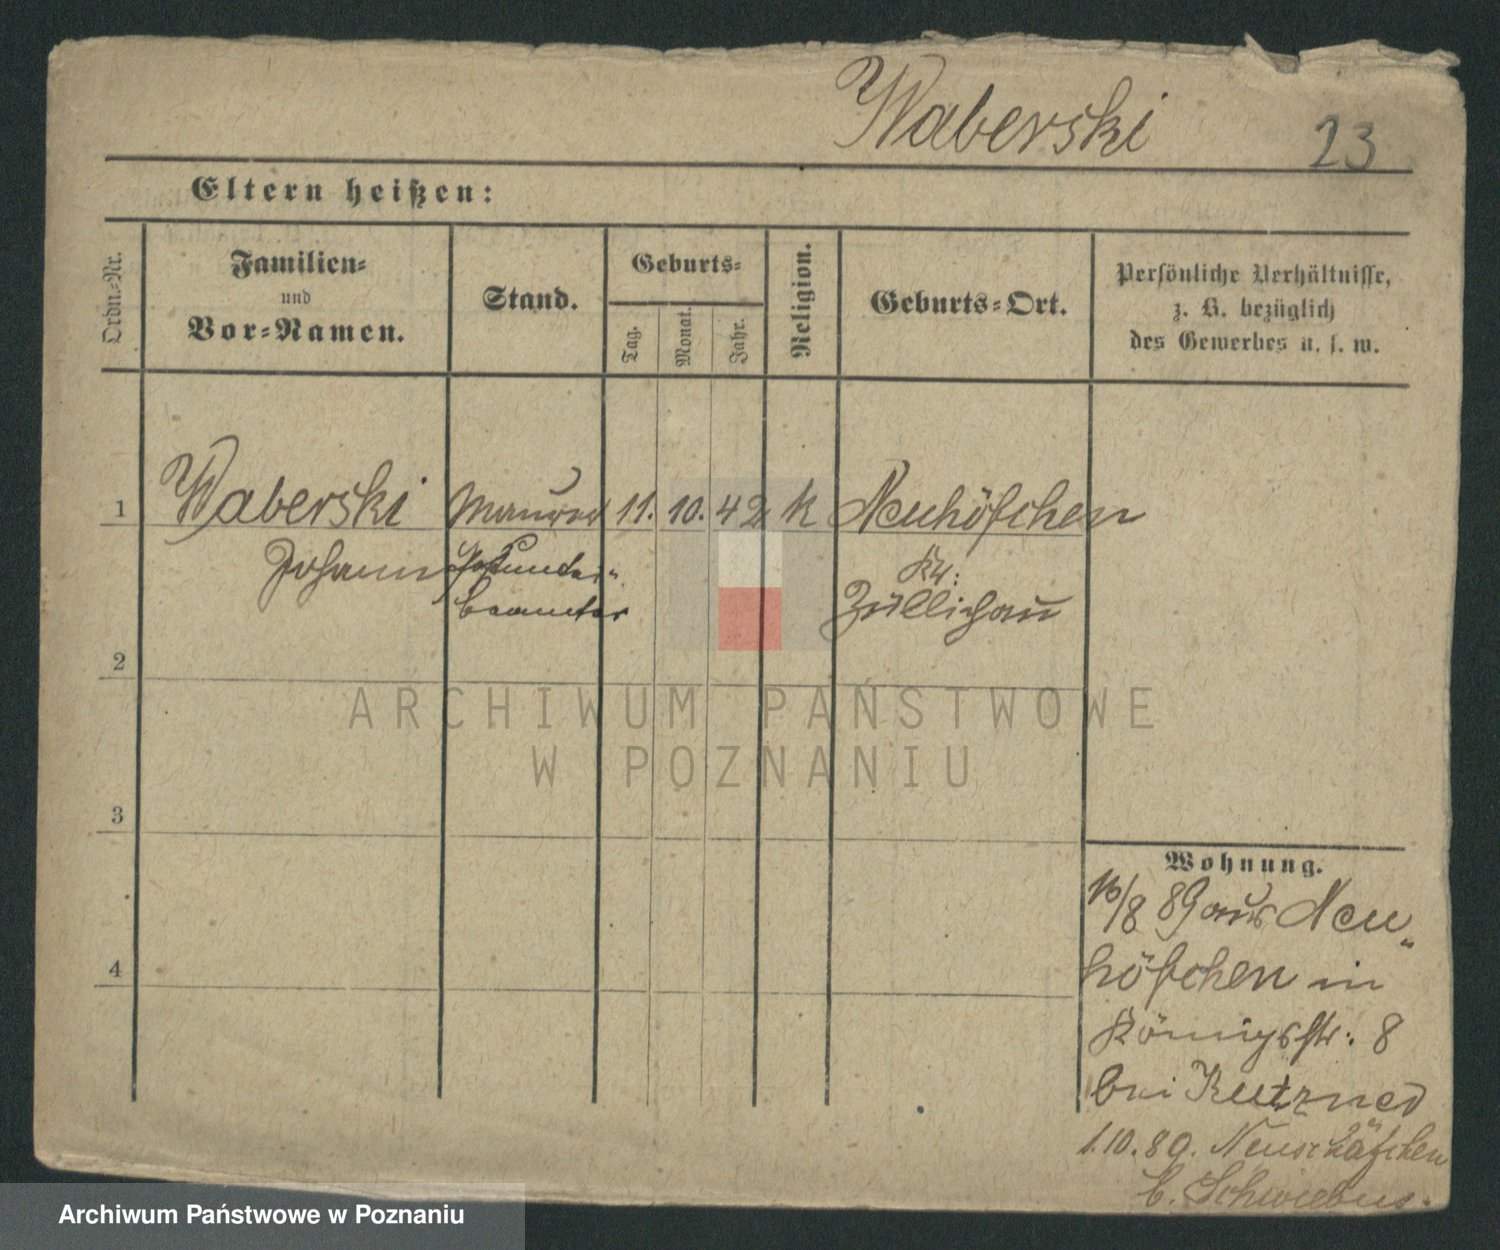 Waberski 23
Eltern heißen:
Ordn.-Nr.
Familien-
und
Vor-Namen.
Stand.
Geburts-
Tag.
Monat.
Jahr.
Religion.
Geburts-Ort.
Persönliche Verhältnisse,
z. B. bezüglich
des Gewerbes u. s. w.
1 Waberski Maurer 11. 10. 42 k Neuhöfchen
Johann Kr:
beamter Züllichau
2
3
4
Wohnung.
16/8 89 aus Neu„
höfchen in
Königsstr: 8
bei Kutzner
1.10.89. Neuschäfchen
b. Schwiebus.
ARCHIWUM PAŃSTWOWE
W POZNANIU
Archiwum Państwowe w Poznaniu